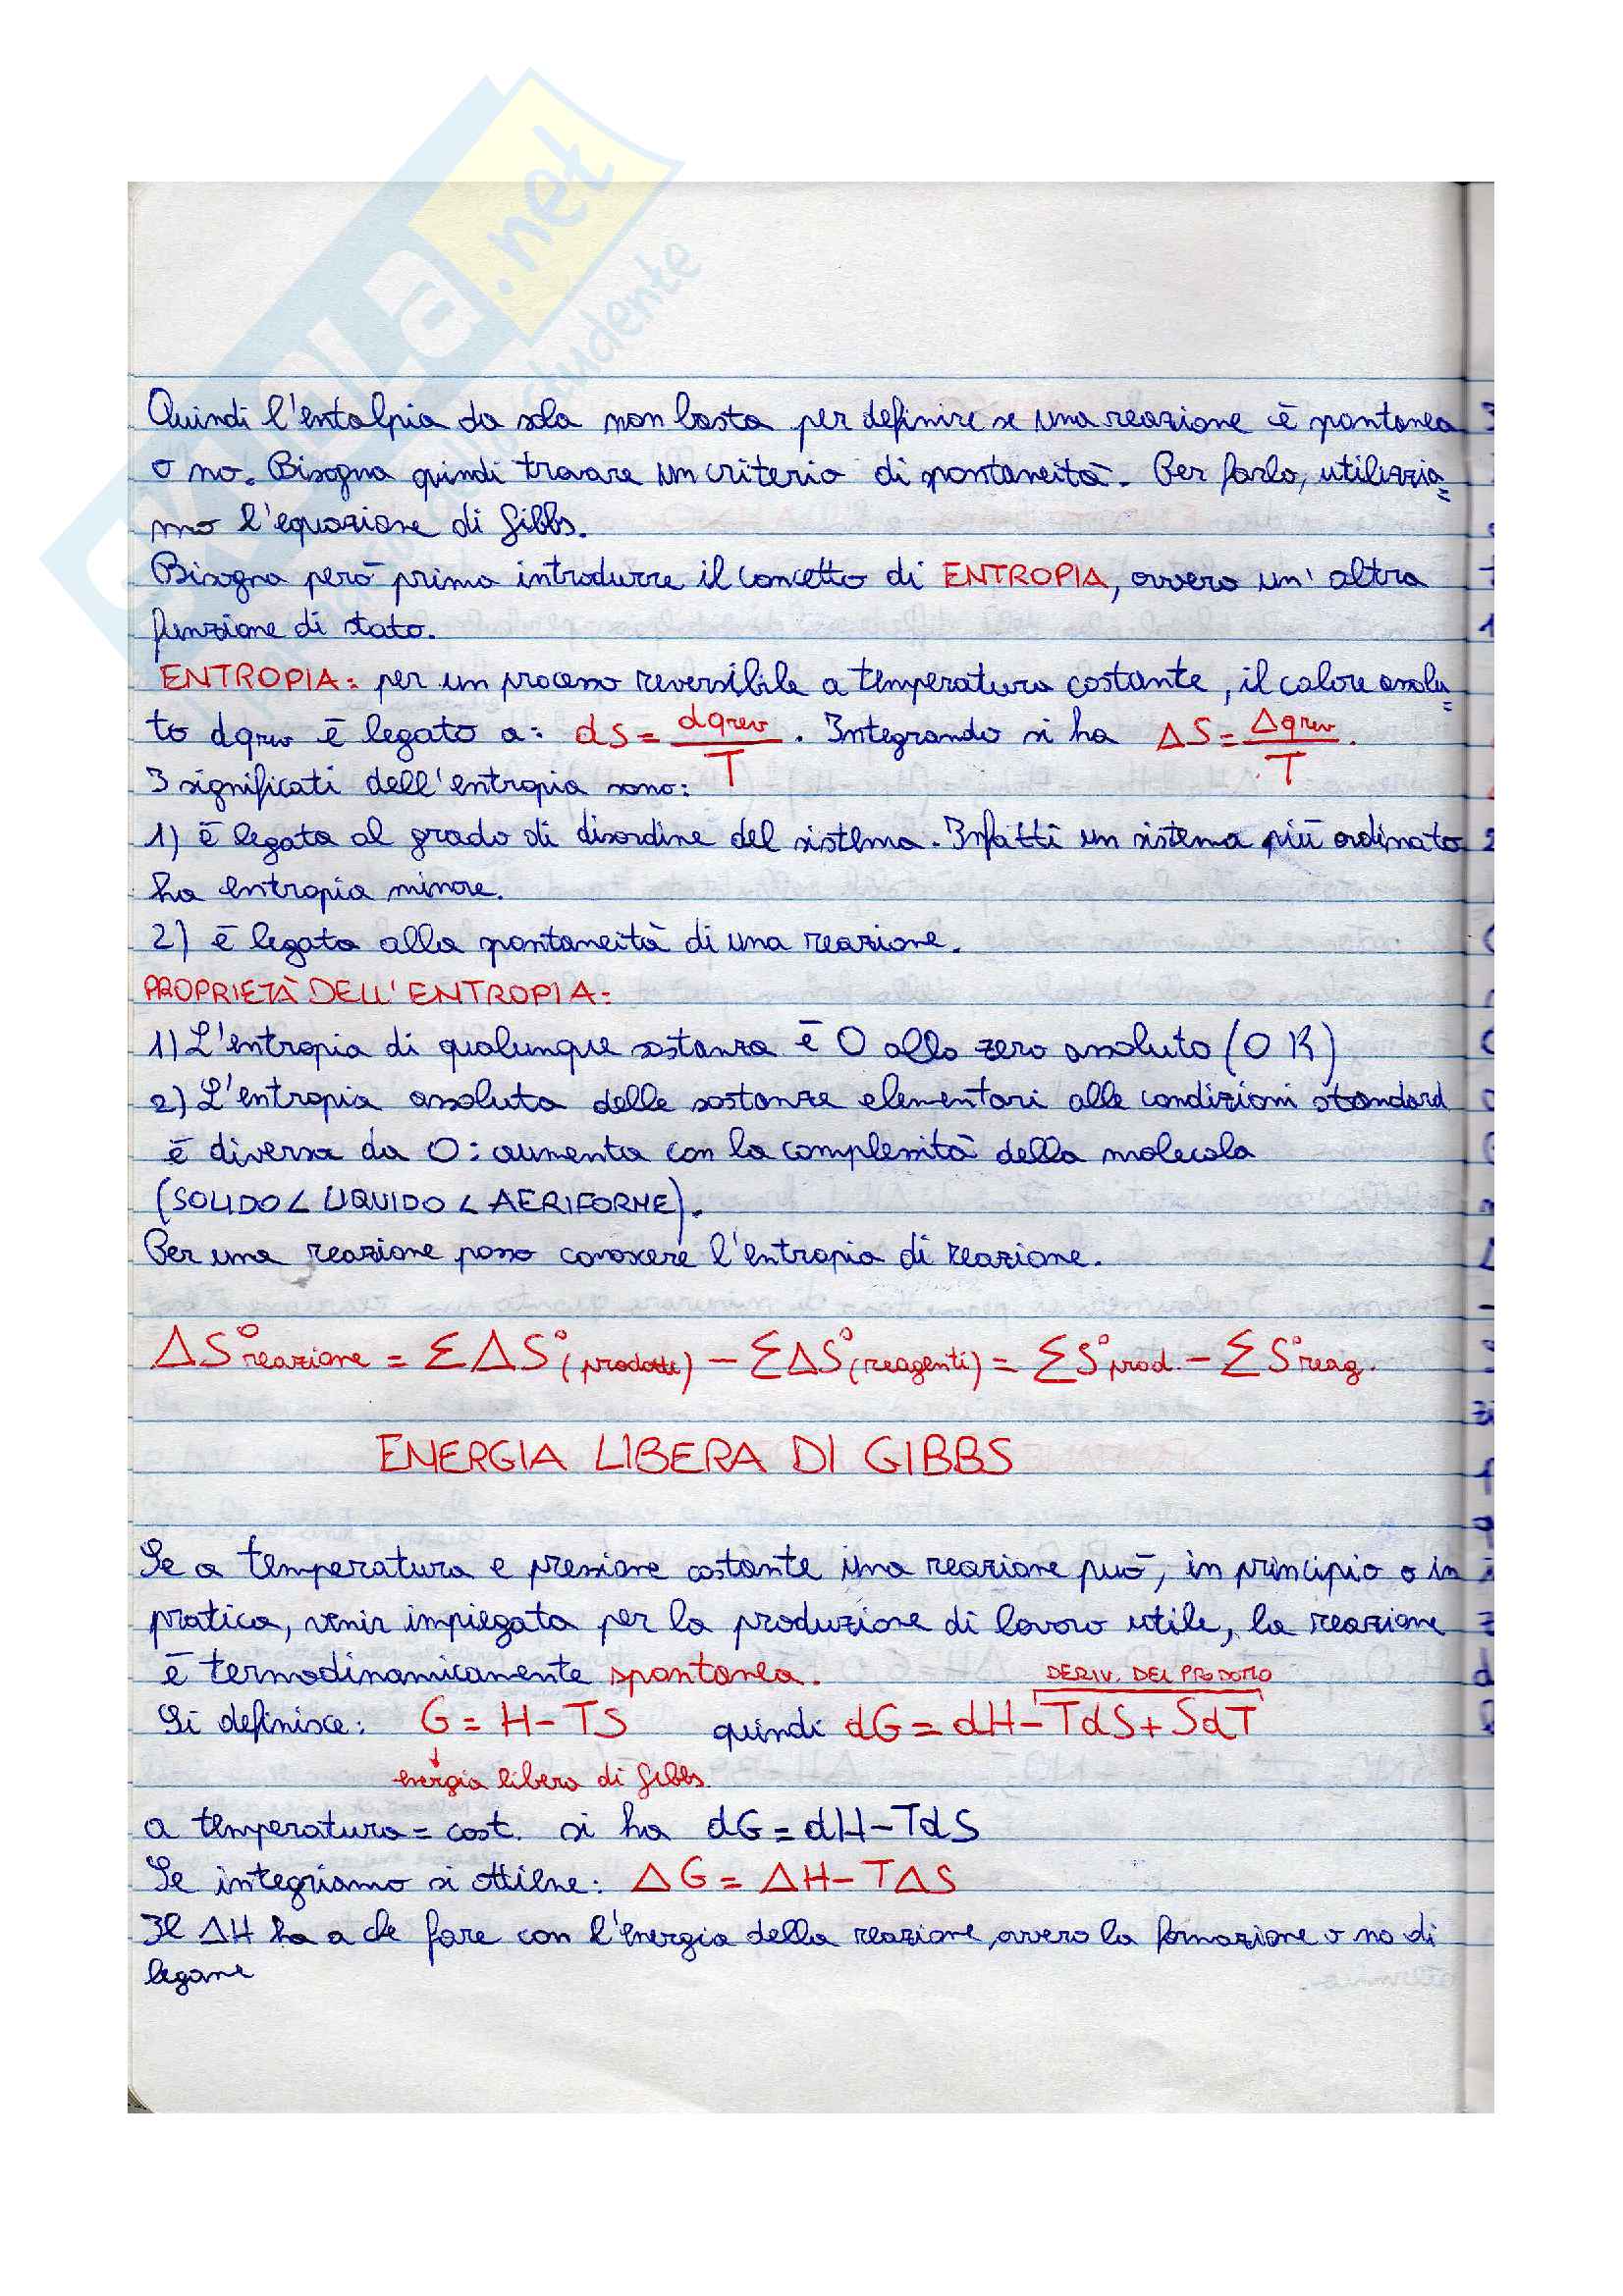 Skuola.net
Quindi l'entalpia da sola non basta per definire se una reazione è spontanea
o no. Bisogna quindi trovare un criterio di spontaneità. Per farlo, utilizzia=
mo l'equazione di Gibbs.
Bisogna però prima introdurre il concetto di ENTROPIA, ovvero un'altra
funzione di stato.
ENTROPIA: per un processo reversibile a temperatura costante, il calore assolu=
to dqrev è legato a: dS = dqrev/T. Integrando si ha ΔS = Δqrev/T.
I significati dell'entropia sono:
1) è legata al grado di disordine del sistema. Infatti un sistema più ordinato
ha entropia minore.
2) è legata alla spontaneità di una reazione.
PROPRIETÀ DELL'ENTROPIA:
1) L'entropia di qualunque sostanza è 0 allo zero assoluto (0 K)
2) L'entropia assoluta delle sostanze elementari alle condizioni standard
è diversa da 0: aumenta con la complessità della molecola
(SOLIDO < LIQUIDO < AERIFORME).
Per una reazione posso conoscere l'entropia di reazione.
ΔS° reazione = ΣΔS° (prodotti) - ΣΔS° (reagenti) = ΣS° prod. - ΣS° reag.
ENERGIA LIBERA DI GIBBS
Se a temperatura e pressione costante una reazione può, in principio o in
pratica, venir impiegata per la produzione di lavoro utile, la reazione
è termodinamicamente spontanea.
DERIV. DEL PRODOTTO
Si definisce: G = H - TS quindi dG = dH - TdS + SdT
energia libera di Gibbs
a temperatura = cost. si ha dG = dH - TdS
Se integriamo si ottiene: ΔG = ΔH - TΔS
Il ΔH ha a che fare con l'energia della reazione, ovvero la formazione o no di
legami